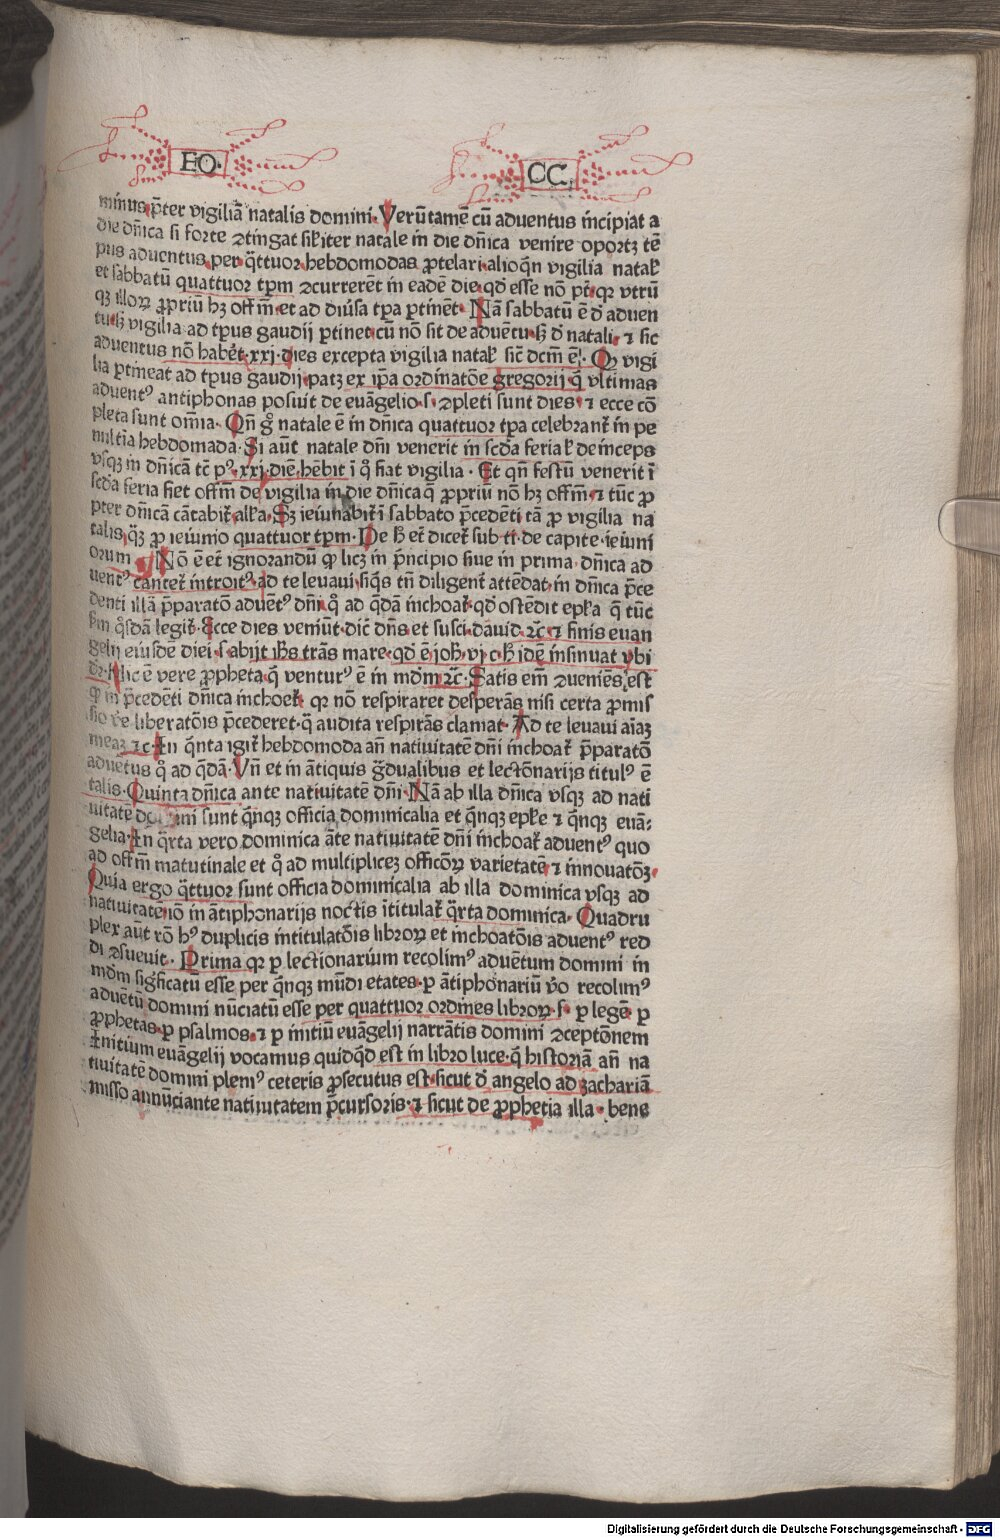 FO. CC.
minus p̄ter vigiliā natalis domini. Verūtamē cū aduentus incipiat a
die dñica si forte ꝯtingat silr̄iter natale in die dñica venire oportꝫ tē
pus aduentus per q̄ttuor hebdomodas ꝓtelari. alioq̄n vigilia natal̄
et sabbatū quattuor tꝑm ꝯcurrerēt in eadē die. qd̄ esse nō pt̄. qꝛ vtrū
qꝫ illoꝝ ꝓpriū hꝫ off m̄. et ad diūsa tꝑa ꝑtinēt. Nā sabbatū ē d̄ aduen
tu. sꝫ vigilia ad tꝑus gaudij ꝑtinet. cū nō sit de aduētu. sꝫ d̄ natali. ⁊ sic
aduentus nō habet̄. xxj. dies excepta vigilia natal̄ sic̄ dcm̄ ē. Qꝫ vigi
lia ꝑtineat ad tꝑus gaudij. patꝫ ex ip̄a ordinatōe gregorij q̄ vltimas
aduentꝰ antiphonas posuit de euāgelio. s. ꝯpleti sunt dies. ⁊ ecce cō
pleta sunt om̄ia. Qn̄ g̊ natale ē in dn̄ica quattuor tꝑa celebrant̄ in pe
nultīa hebdomada. Si aūt natale dn̄i venerit in scd̄a feria l̄ deinceps
vsqꝫ in dn̄icā tē pꝰ. xxj. diē. hēbit ī q̊ fiat vigilia. Et qn̄ festū venerit ī
scd̄a feria fiet off m̄ de vigilia in die dn̄ica q̄ ꝓpriū nō hꝫ off m̄. ⁊ tūc ꝓ
pter dn̄icā cātabit̄ alr̄a. Sꝫ ieiunabit̄ ī sabbato p̄cedēti tā ꝓ vigilia na
talis. q̄ꝫ ꝓ ieiunio quattuor tꝑm. De h̄ et̄ dicet̄ sub ti. de capite ieiuni
orum Nō ē et̄ ignorandū ꝙ licꝫ in p̄ncipio siue in prima dn̄ica ad
uentꝰ cantet̄ introitꝰ. ad te leuaui. siq̄s tn̄ diligent̄ attēdat. in dn̄ica p̄ce
denti illā p̄paratō aduētꝰ dn̄i. q̊ ad q̄dā inchoat̄. qd̄ ostēdit epl̄a q̄ tūc
q̊sdā legit̄. Ecce dies veniūt. dic̄ dn̄s et susci. dauid. ⁊c̄. ⁊ finis euan
gelij eiusdē diei. s. abijt ih̄s trās mare. qd̄ ē joh̄. vj. c. h̄ idē insinuat vbi
dr̄. Hic ē vere ꝓpheta. q̄ venturꝰ ē in mdm̄ ⁊c̄. Satis em̄ ꝯueniēs est
ꝙ in p̄cedēti dn̄ica inchoet̄. qꝛ nō respiraret desperās nisi certa ꝓmis
sio liberatōis p̄cederet. q̄ audita respirās clamat. Ad te leuaui aīaꝫ
meaꝫ ⁊c. In q̄nta igit̄ hebdomoda an̄ natiuitatē dn̄i inchoat̄ p̄paratō
aduētus q̊ ad q̄dā. Vn̄ et in ātiquis g̊dualibus et lectōnarijs titulꝰ ē
talis. Quinta dn̄ica ante natiuitatē dn̄i. Nā ab illa dn̄ica vsqꝫ ad nati
uitatē domini sunt q̄nqꝫ officia dominicalia et q̄nqꝫ epl̄e ⁊ q̄nqꝫ euā-
gelia. In q̄rta vero dominica āte natiuitatē dn̄i inchoat̄ aduentꝰ quo
ad off m̄ matutinale et q̊ ad multiplicez officōꝝ varietatē ⁊ innouatōꝫ.
Quia ergo q̄ttuor sunt officia dominicalia ab illa dominica vsqꝫ ad
natiuitatē. iō in ātiphonarijs noctis ītitulat̄ q̄rta dominica. Quadru
plex aūt rō hꝰ duplicis intitulatōis libroꝝ et inchoatōis aduentꝰ red
di ꝯsueuit. Prima qꝛ ꝑ lectionarium recolimꝰ aduētum domini in
mdm̄ sigficatū esse per q̄nqꝫ mūdi etates. ꝑ ātiphonariū v̄o recolimꝰ
aduētū domini nūciatū esse per quattuor ordines libroꝝ. s. ꝑ legē. ꝑ
ꝓphetas. ꝑ psalmos. ⁊ ꝑ initiū euāgelij narrātis domini ꝯceptōnem
Initium euāgelij vocamus quidq̄d est in libro luce. q̄ historiā an̄ na
tiuitatē domini plenꝰ ceteris ꝓsecutus est. sicut d̄ angelo ad zachariā
misso annūciante natiuitatem p̄cursoris. ⁊ sicut de ꝓphetia illa. bene
Digitalisierung gefördert durch die Deutsche Forschungsgemeinschaft - DFG